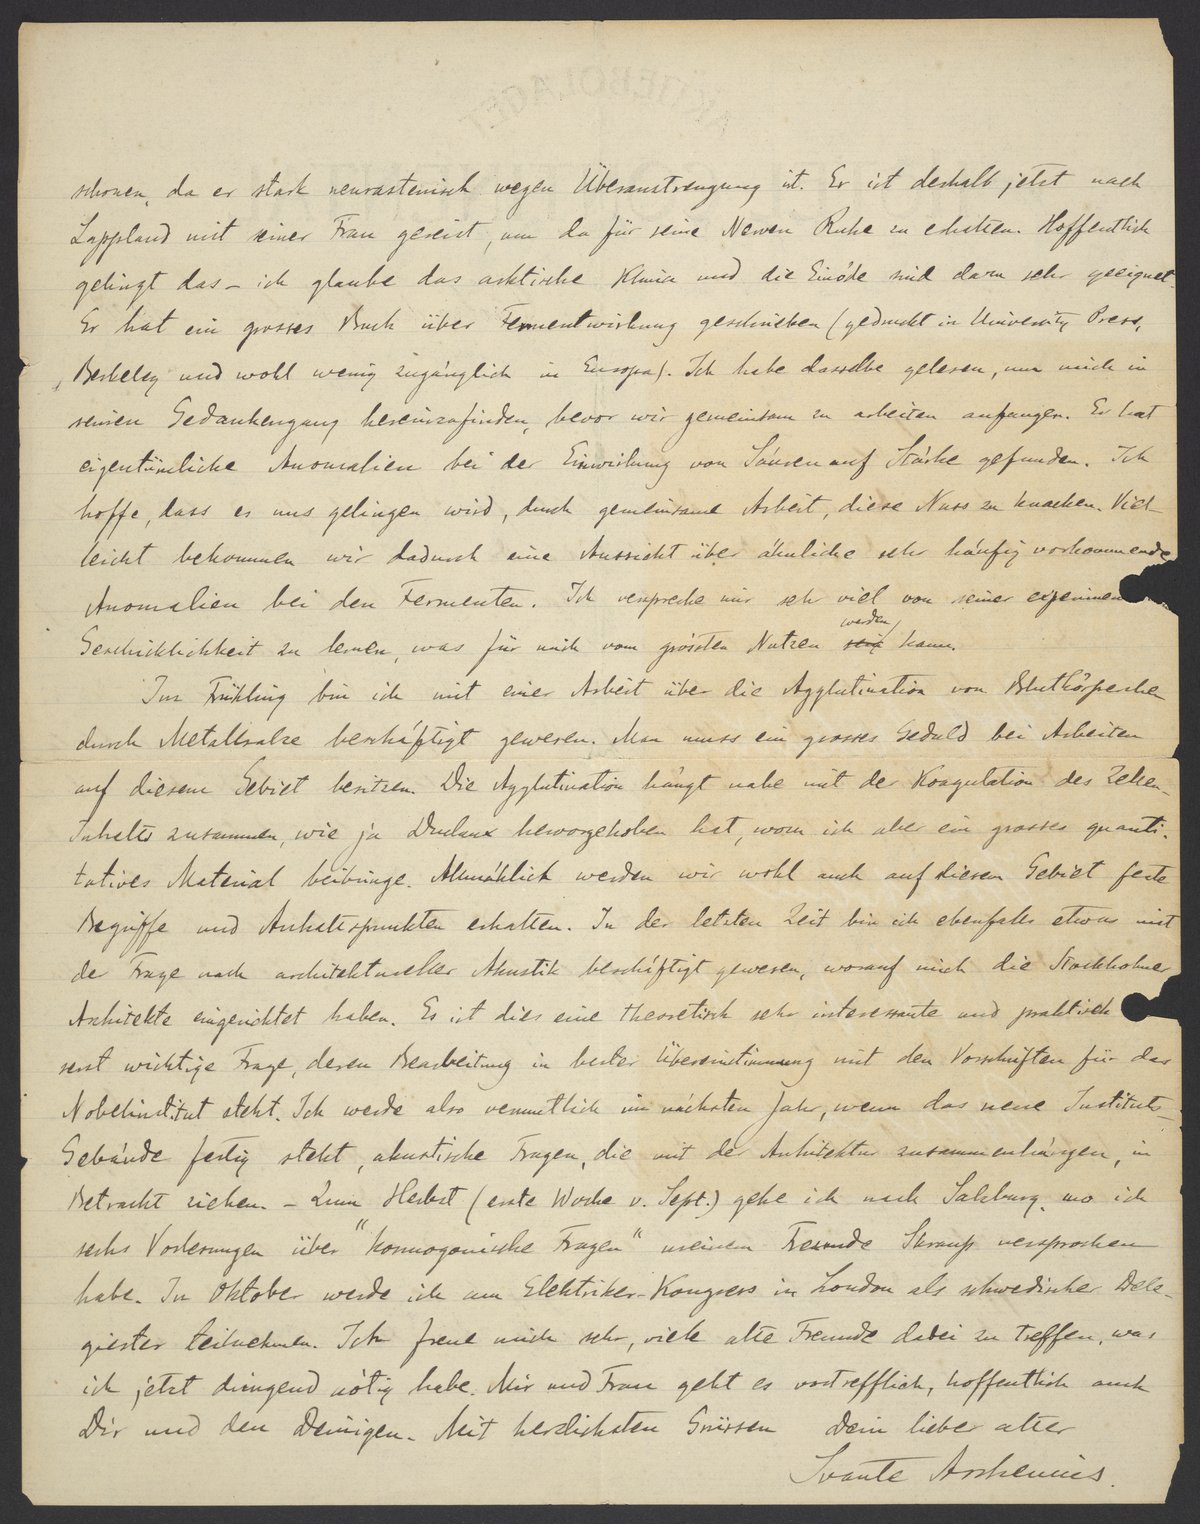 AKTIEBOLAGET
schonen, da er stark neurastenisch wegen Überanstrengung ist. Er ist deshalb jetzt nach
Lappland mit seiner Frau gereist, um da für seine Nerven Ruhe zu erhalten. Hoffentlich
gelingt das – ich glaube das arktische Klima und die Einöde sind dazu sehr geeignet.
Er hat ein grosses Buch über Fermentwirkung geschrieben (gedruckt in University Press,
Berkeley und wohl wenig zugänglich in Europa). Ich habe dasselbe gelesen, um mich in
seinen Gedankengang hereinzufinden, bevor wir gemeinsam zu arbeiten anfangen. Er hat
eigentümliche Anomalien bei der Einwirkung von Säuren auf Stärke gefunden. Ich
hoffe, dass es uns gelingen wird, durch gemeinsame Arbeit, diese Nuss zu knacken. Viel-
leicht bekommen wir dadurch eine Aussicht über ähnliche sehr häufig vorkommende
Anomalien bei den Fermenten. Ich verspreche mir sehr viel von seiner experimen
Geschicklichkeit zu lernen, was für mich vom grössten Nutzen sein werden kann.
Im Frühling bin ich mit einer Arbeit über die Agglutination von Blutkörperchen
durch Metallsalze beschäftigt gewesen. Man muss ein grosses Geduld bei Arbeiten
auf diesem Gebiet besitzen. Die Agglutination hängt nahe mit der Koagulation des Zellen-
Inhaltes zusammen, wie ja Duclaux hervorgehoben hat, wozu ich aber ein grosses quanti-
tatives Material beibringe. Allmählich werden wir wohl auch auf diesem Gebiet feste
Begriffe und Anhaltspunkten erhalten. In der letzten Zeit bin ich ebenfalls etwas mit
der Frage nach architektureller Akustik beschäftigt gewesen, worauf mich die Stockholmer
Architekte eingerichtet haben. Es ist dies eine theoretisch sehr interessante und praktisch
serst wichtige Frage, deren Bearbeitung in bester Übereinstimmung mit den Vorschriften für das
Nobelinstitut steht. Ich werde also vermutlich im nächsten Jahr, wenn das neue Instituts-
Gebäude fertig steht, akustische Fragen, die mit der Architektur zusammenhängen, in
Betracht ziehen. – Zum Herbst (erste Woche v. Sept.) gehe ich nach Salzburg, wo ich
sechs Vorlesungen über "kosmogonische Fragen" meinem Freunde Skraup versprochen
habe. Im Oktober werde ich am Elektriker-Kongress in London als schwedischer Dele-
gierter teilnehmen. Ich freue mich sehr, viele alte Freunde dabei zu treffen, was
ich jetzt dringend nötig habe. Mir und Frau geht es vortrefflich, hoffentlich auch
Dir und den Deinigen. Mit herzlichsten Grüssen Dein lieber alter
Svante Arrhenius.